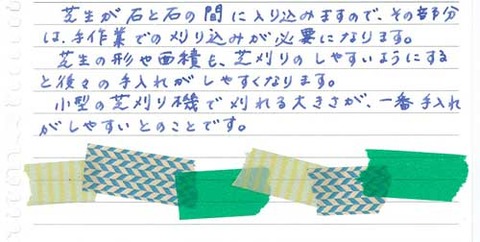 芝生が石と石の間に入り込みますので、その部分
は、手作業での刈り込みが必要になります。
芝生の形や面積も、芝刈りのしやすいようにする
と後々の手入れがしやすくなります。
小型の芝刈り機で刈れる大きさが、一番手入れ
がしやすいとのことです。